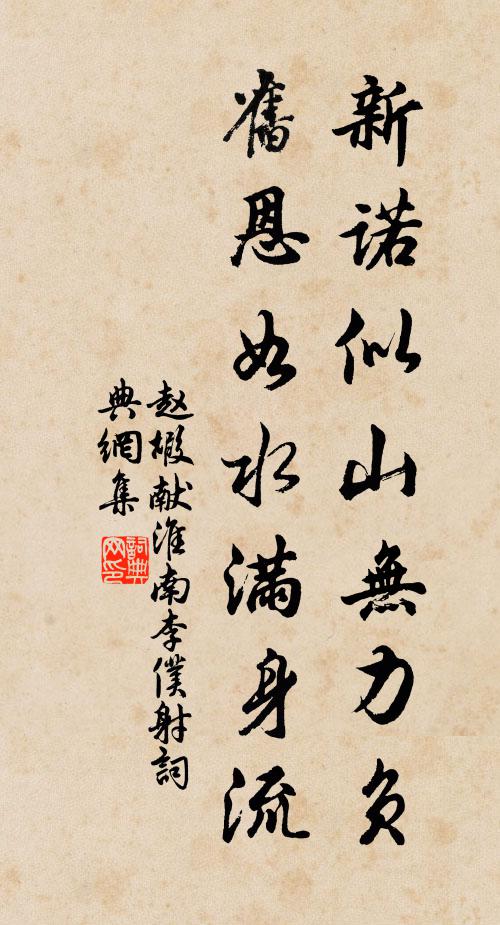 新诺似山無力负
舊恩如水满身流
赵嘏献淮南李僕射詞
典網集
詞典
网印